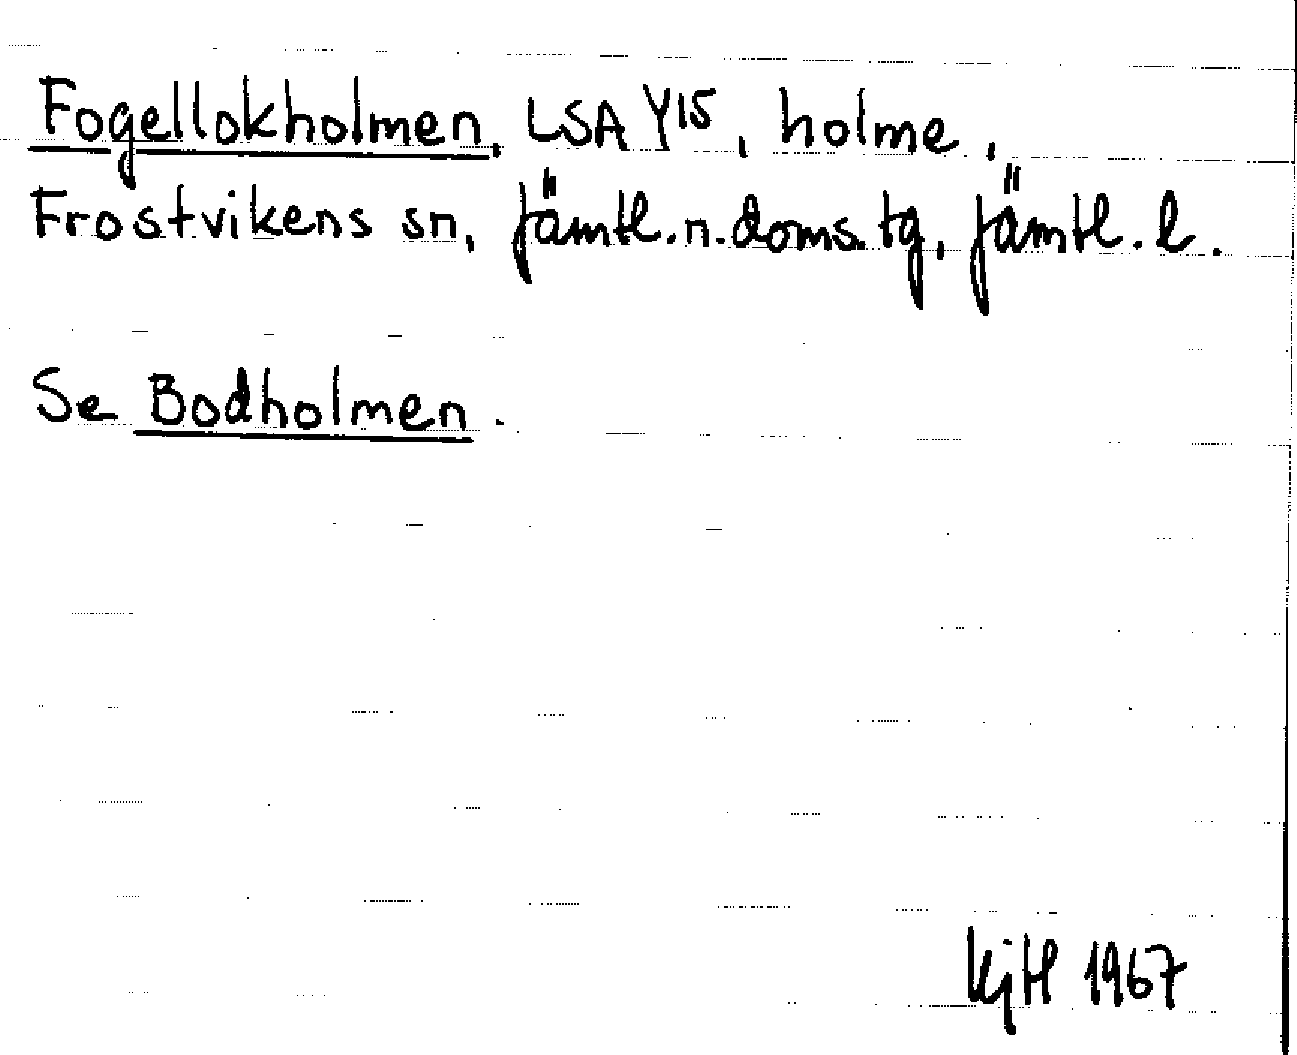 Fogellokholmen, LSA Y15, holme,
Frostvikens sn, Jämtl.n.doms.tg, Jämtl.l.
Se Bodholmen.
KjH 1967